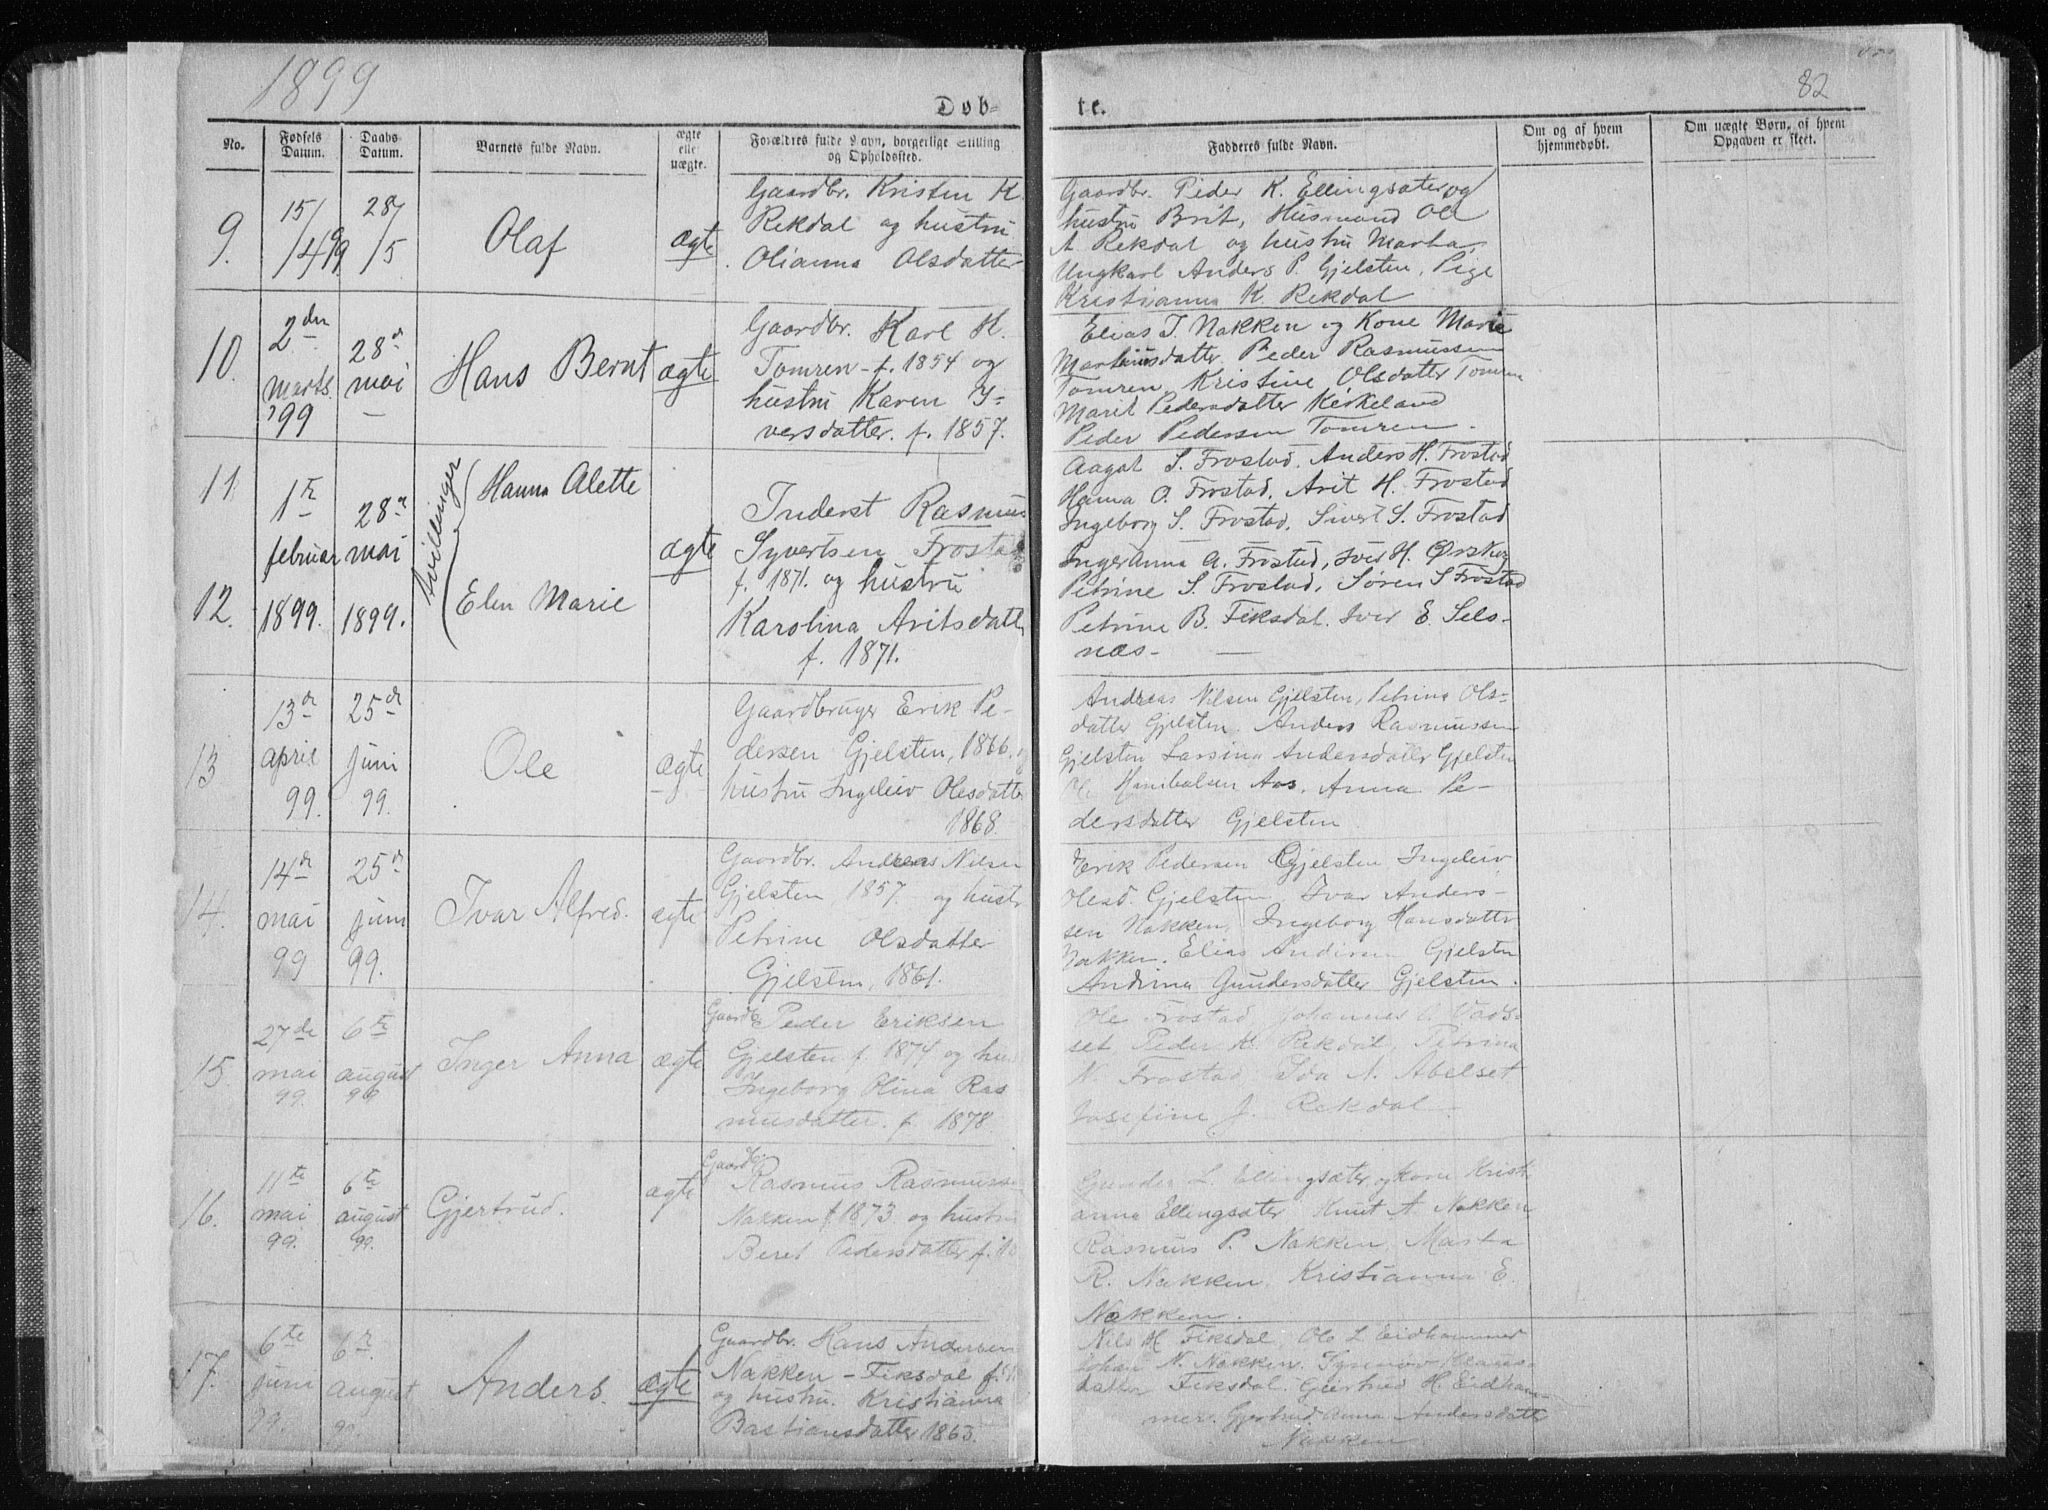 1899
82
Døb-
te.
No.
Fødsels Datum.
Daabs Datum.
Barnets fulde Navn.
ægte elle uægte.
Forældres fulde Navn, borgerlige Stilling og Opholdssted.
Fadderes fulde Navn.
Om og af hvem hjemmedøbt.
Om uægte Børn, af hvem Opgaven er skeet.
9.
15/4 99
28/5
Olaf
ægte
Gaardbr. Kristen K.
Rekdal og hustru
Olianna Olsdatter
Gaardbr. Peder K. Ellingsæter og
hustru Brit, Husmand Ole
A Rekdal og hustru Marta,
Ungkarl Anders P. Gjelsten, Pige
Kristianna K. Rekdal
10.
2den
marts
99
28de
mai
Hans Bernt
ægte
Gaardbr. Karl H.
Tomren f. 1854 og
hustru Karen I-
versdatter. f. 1857.
Elias I. Nakken og Kone Marie
Martinusdatter. Peder Rasmussen
Tomren, Kristine Olsdatter Tomren
Marit Pedersdatter Kirkeland
Peder Pedersen Tomren.
11.
12.
1ste
februar
1899.
28de
mai
1899.
tvillinger
Hanna Alette
Elen Marie
ægte
Inderst Rasmus
Syvertsen Frostad
f. 1871. og hustru
Karolina Aritsdatter
f. 1871.
Aagot S. Frostad, Anders H. Frostad
Hanna O. Frostad, Arit H. Frostad
Ingeborg S. Frostad, Sivert S. Frostad
Inger Anna A. Frostad, Iver H. Ørskog
Petrine S. Frostad, Søren S Frostad
Petrine B. Fiksdal, Iver E. Sels-
næs-
13
13de
april
99.
25de
juni
99.
Ole
ægte
Gaardbruger Erik Pe-
dersen Gjelsten, 1866. og
hustru Ingeleiv Olesdatter
1868.
Andreas Nilsen Gjelsten, Petrina Ols-
datter Gjelsten. Anders Rasmussen
Gjelsten Larsina Andersdatter Gjelsten
Ole Hanibalsen Aas. Anna Pe-
dersdatter Gjelsten
14.
14de
mai
99
25de
juni
99.
Ivar Alfred.
ægte
Gaardbr. Andreas Nilsen
Gjelsten, 1857. og hustr
Petrine Olsdatter
Gjelsten, 1861.
Erik Pedersen Gjelsten Ingeleiv
Olesd. Gjelsten, Ivar Anders-
sen Nakken, Ingeborg Hansdatter
Nakken. Elias Gjelsten
Andrina Gundersdatter Gjelsten.
15.
27de
mai
99.
6te
august
99
Inger Anna
ægte
Gaardbr Peder Eriksen
Gjelsten f. 1874 og hus
Ingeborg Olina Ras
musdatter. f. 1878.
Ole Frostad Johannes Vads-
set Peder K. Rekdal, Petrina
N. Frostad Ida N. Abelset
Josefine J. Rekdal
16.
11te
mai
99.
6te
august
99.
Gjertrud.
ægte
Gaardbr.
Rasmus Rasmussen
Nakken f 1873 og hustru
Beret Pedersdatter f. 18
Gunder L. Ellingsæter og kone Krist-
anna Ellingsæter Knut A. Nakken
Rasmus P. Nakken, Marta
R. Nakken. Kristianna E.
Nakken.
17.
6te
juni
99.
6te
august
99
Anders.
ægte
Gaardbr. Hans Andersen
Nakken - Fiksdal f.
og hustru. Kristianna
Bastiansdatter 1863.
Nils H Fiksdal Ole L Eidhammer
Johan N. Nakken. Synnøv Klaus-
datter Fiksdal. Gjertrud H. Eidham-
mer. Gjertrud Anna Andersdatter
Nakken